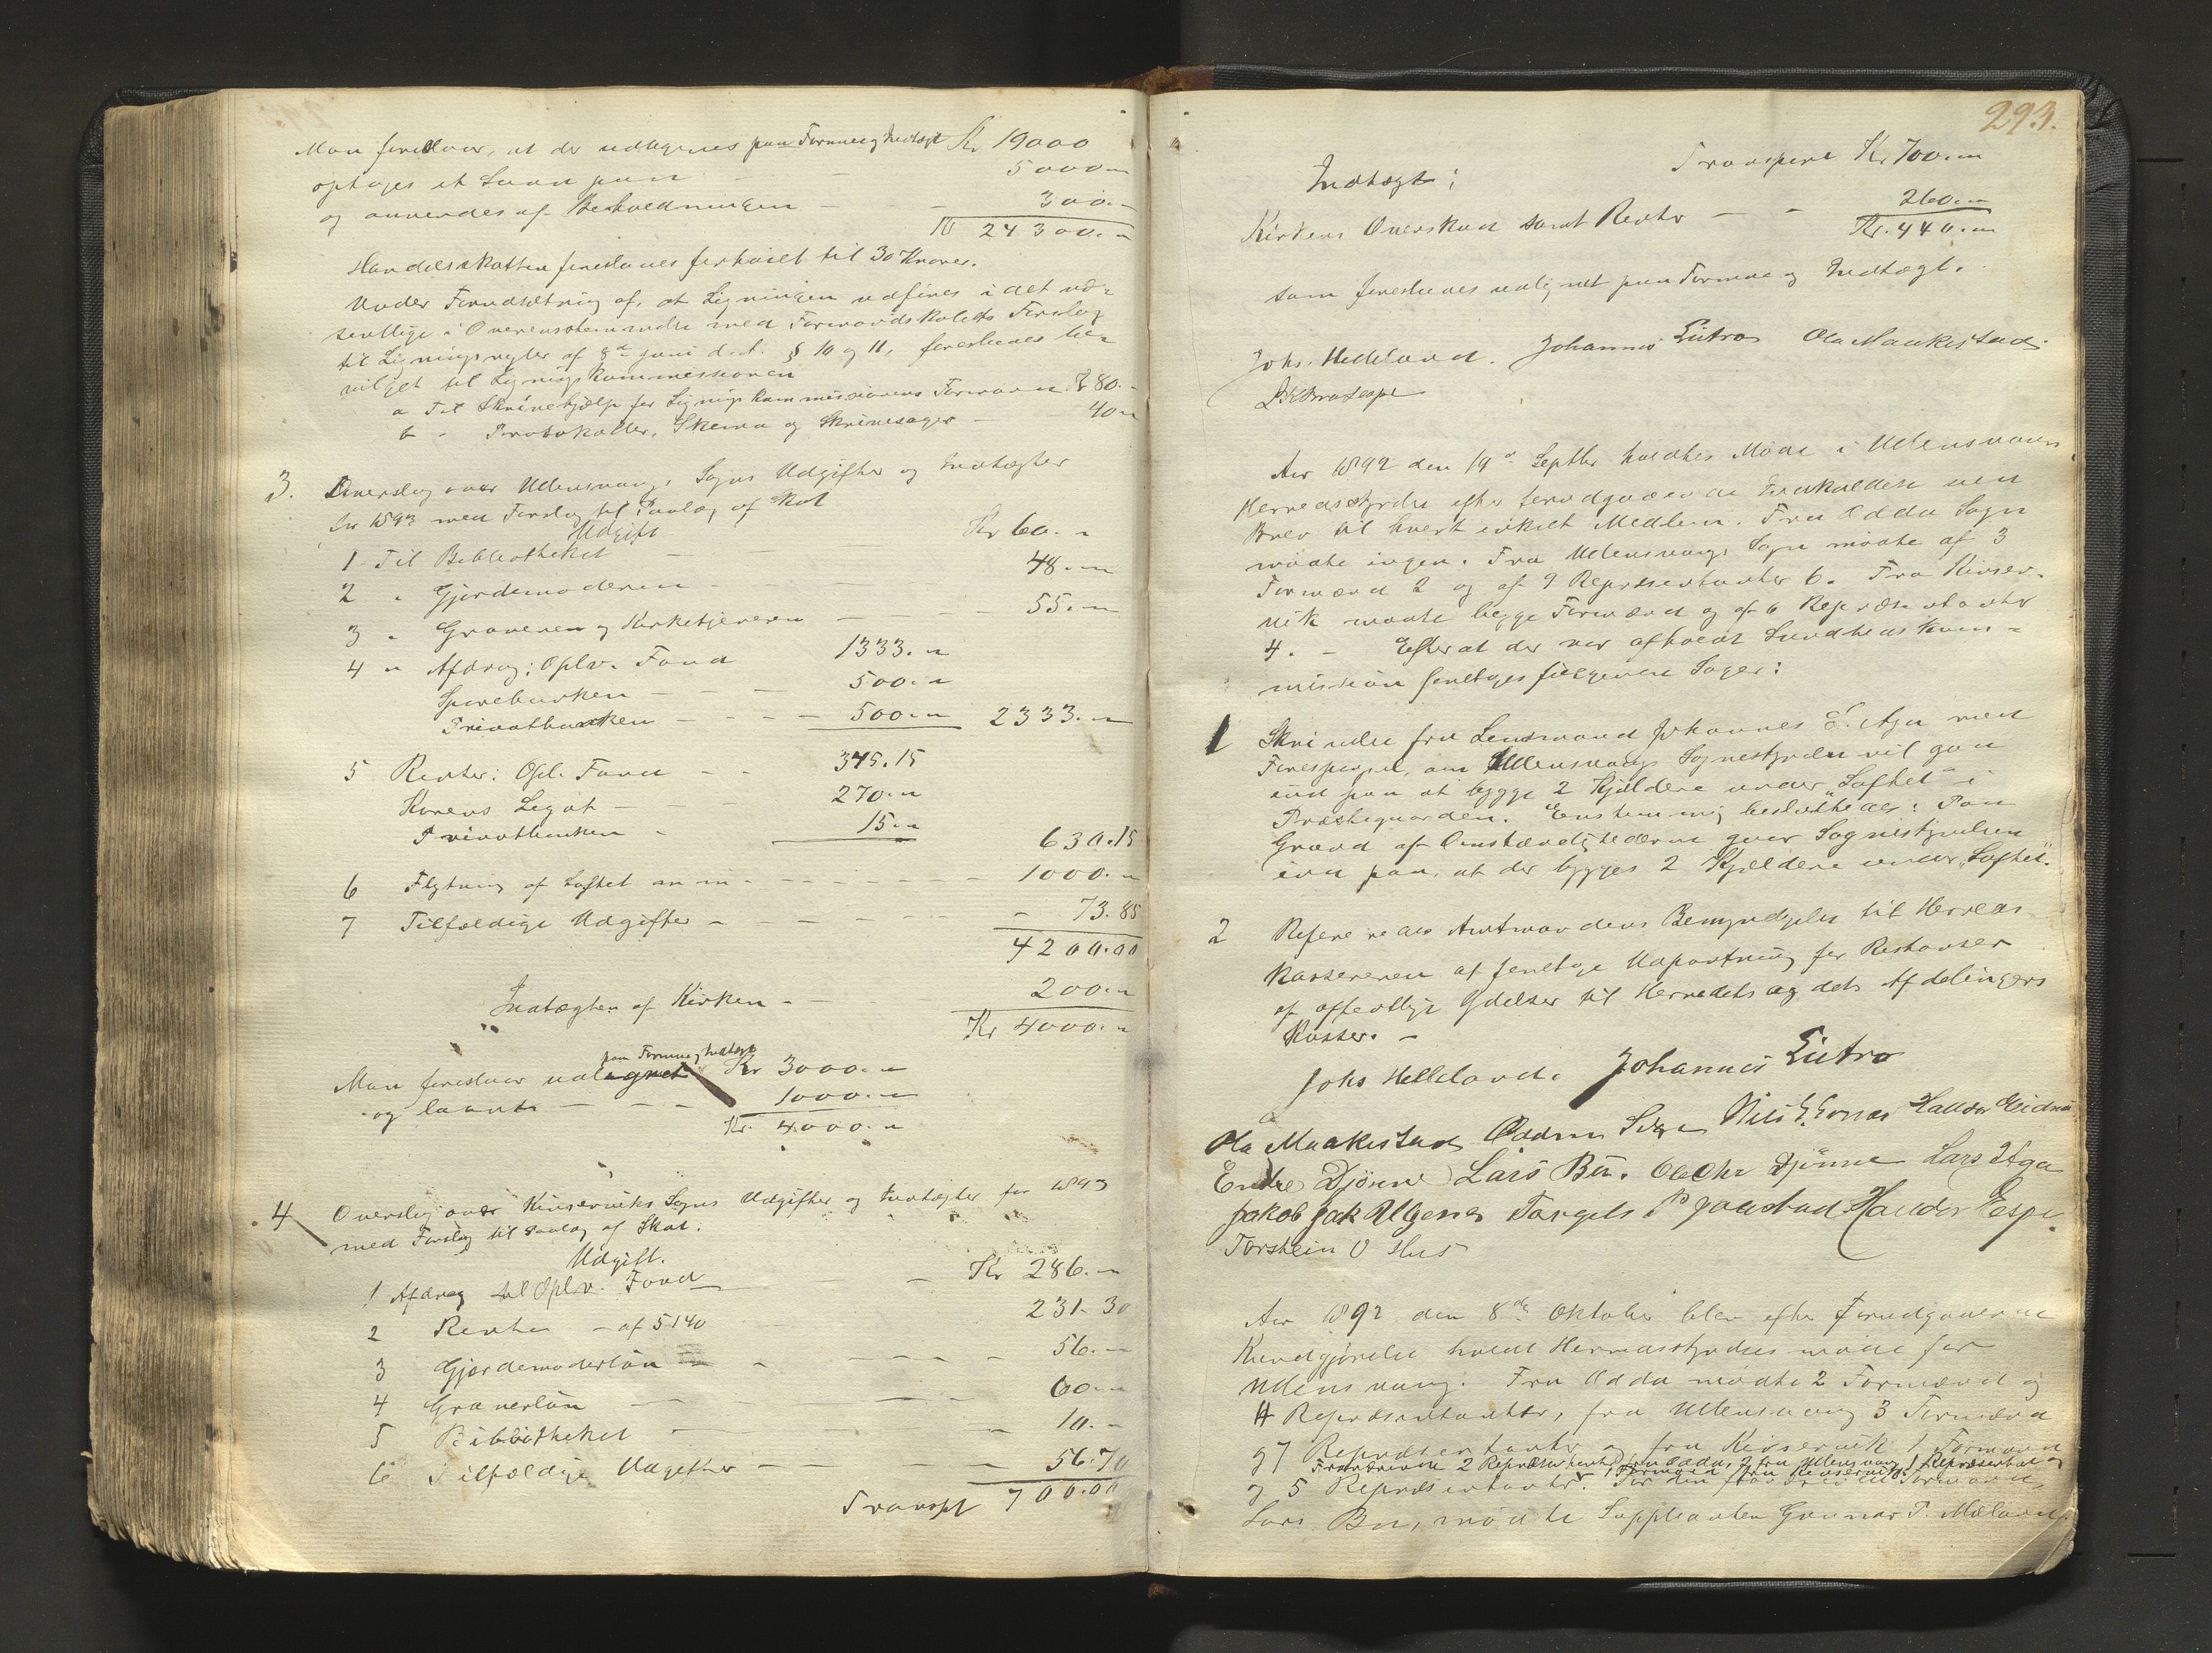 Man foreslaar, at der udlignes paa Formue og Indtægt Kr 19000
optages et Laan paa - - 5000.-
og anvendes af Beholdningen - - - 300.-
Kr 24300.-
Handelsskatten foreslaaes forhøiet til 30 Kroner.
Under Forudsætning af, at Ligningen udføres i det væ-
sentlige i Overensstemmelse med Formandskabets Forslag
til Ligningsregler af 8de Juni d. A. § 10 og 11, foreslaaes be-
vilget til Ligningskommissionen
a Til Skrivehjælp for Ligningskommissionens Formand Kr 80.-
b - Protokoller, Skema og Skrivesager - 40.-
3. Overslag over Ullensvangs Sogns Udgifter og Indtægter
for 1893 med Forslag til Paalæg af Skat
Udgift
1 Til Bibliotheket - - Kr 60.-
2 " Gjordemoderen - - 48.-
3 " Graveren og Kirketjeneren - - - 55.-
4 " Afdrag: Oplv. Fond 1333.-
Sparebanken - - - 500.-
Privatbanken - - - - 500.- 2333.-
5 Renter: Opl. Fond - - 345.15
Krens Legat - - 270.-
Privatbanken - 15.- 630.15
6 Flytning af Loftet m m - - - - - - 1000.-
7 Tilfældige Udgifter - - - - - - - 73.85
4200.00
Indtægter af Kirken - - 200.-
Kr 4000.-
paa Formue og Indtægt
Man foreslaar udlignet Kr 3000.-
og laante - - - 1000.-
Kr. 4000.-
4 Overslag over Kinserviks Sogns Udgifter og Indtægter for 1893
med Forslag til Paalæg af Skat.
Udgift.
1 Afdrag til Oplv. Fond - - Kr 286.-
2 Renter - af 5140 231.30
3 Gjordemoderløn - - - - - 56.-
4 Graverløn - - - - 60.-
5 Bibliotheket - - - 10.-
6 Tilfældige Udgifter - - - - 56.70
Transpt 700.00
293.
Transport Kr 700.-
Indtægt:
Kirkens Overskud samt Renter - - 260.-
Kr. 440.-
som foreslaaes udlignet paa Formue og Indtægt.
Johs. Helleland. Johannes Eitro Ola Maakestad
Aar 1892 den 19de Septbr holdtes Møde i Ullensvangs
Herredsstyrelse efter forudgaaende Indkaldelse ved
Brev til hvert enkelt Medlem. Fra Odda Sogn
mødte ingen. Fra Ullensvangs Sogn mødte af 3
Formænd 2 og af 9 Repræsentanter 6. Fra Kinser-
vik mødte begge Formænd og af 6 Repræsentanter
4. - Efter at der var afholdt Sundhedskom-
mission foretoges følgende Sager:
1 Skrivelse fra Lensmand Johannes E. Aga med
Forespørsel, om Ullensvangs Sognestyrelse vil gaa
ind paa at bygge 2 Kjældere under "Loftet" i
Præstegaarden. Enstemmig besluttedes: Paa
Grund af Omstændighederne gaar Sognestyrelsen
ind paa, at der bygges 2 Kjældere under "Loftet".
2 Refereredes Amtmandens Bemyndigelse til Herreds
kassereren at foretage Udpantning for Restanser
af offentlige Ydelser til Herredets og dets Afdelingers
Kasser. -
Johs Helleland. Johannes Eitro
Ola Maakestad Oddm Nils Haldor Eidnes
Endre Djønne Lars Bu. Ole Chr Djønne Lars Aga
Jakob Jak Ulgenes Torgels P Jaastad Haldor Espe
Torstein O Hus
Aar 1892 den 8de Oktober blev efter forudgaaende
Kundgjørelse holdt Herredsstyrelsesmøde for
Ullensvang. Fra Odda mødte 2 Formænd og
4 Repræsentanter, fra Ullensvang 3 Formænd
og 7 Repræsentanter og fra Kinservik 1 Formand
Fraværende 2 Repræsentanter fra Odda, 2 fra Ullensvang 1 Repræsentant og
1 Formand fra Kinservik
og 5 Repræsentanter. For den fraværende Formand,
Lars Bu, mødte Suppleanten Gunnar T. Mæland.